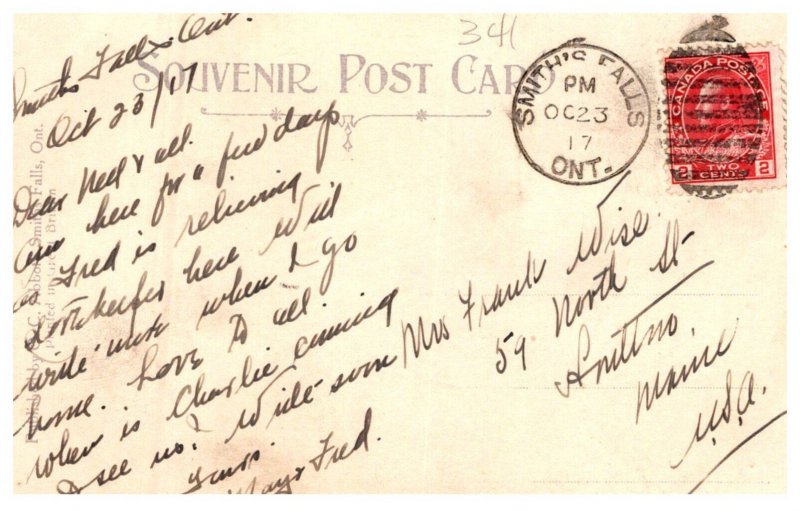 341
SOUVENIR POST CARD
SMITH'S FALLS
PM
OC 23
17
ONT.
CANADA POSTAGE
2 TWO CENTS 2
Smiths Falls Ont.
Oct 23/17
Dear Nell & all.
am here for a few days
as Fred is relieving
storekeeper here will
write more when I go
home. Love to all
when is Charlie coming
to see us? Write soon
Yours.
May & Fred.
Mrs Frank Wise.
59 North St
Houlton,
Maine
U.S.A.
Smiths Falls, Ont.
Printed in Great Britain